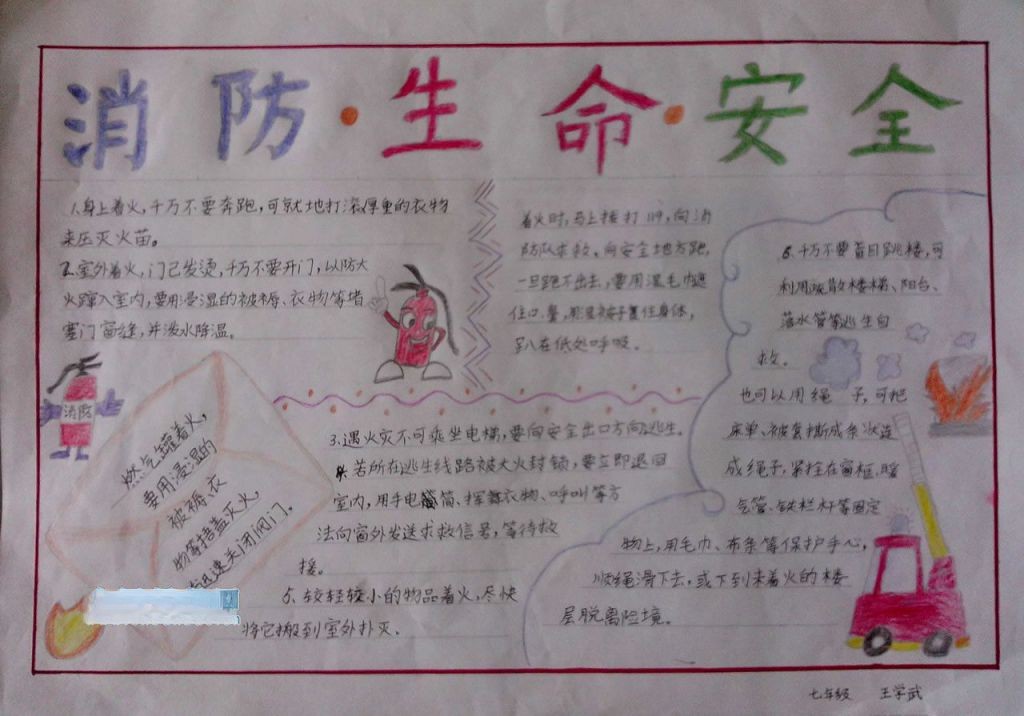 消防·生命·安全
1.身上着火,千万不要奔跑,可就地打滚厚重的衣物
来压灭火苗。
2.室外着火,门己发烫,千万不要开门,以防大
火蹿入室内,要用浸湿的被褥、衣物等堵
塞门窗缝,并泼水降温。
着火时,马上拨打119,向消
防队求救,向安全地方跑,
一旦跑不出去,要用湿毛巾
住口鼻,住身体,
趴在低处呼吸.
消防
燃气罐着火,
要用浸湿的
被褥、衣
物等捂盖灭火,
迅速关闭阀门.
3.遇火灾不可乘坐电梯,要向安全出口方向逃生.
4.若所在逃生线路被大火封锁,要立即退回
室内,用手电筒、挥舞衣物、呼叫等方
法向窗外发送求救信号,等待救
援。
5.较轻较小的物品着火,尽快
将它搬到室外扑灭.
6.千万不要盲目跳楼,可
利用疏散楼梯、阳台、
落水管等逃生自
救.
也可以用绳子,可把
床单、被套撕成条状连
成绳子,紧拴在窗框、暖
气管、铁栏杆等固定
物上,用毛巾、布条等保护手心,
顺绳滑下去,或下到未着火的楼
层脱离险境.
七年级 王学武